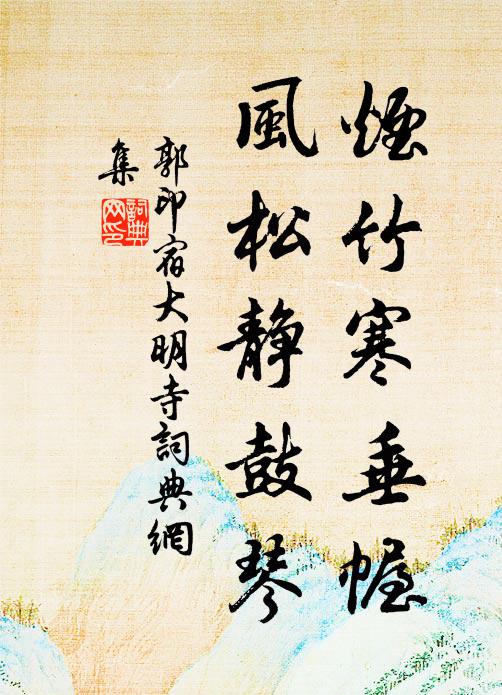 煙竹寒垂幄
風松靜鼓琴
郭印宿大明寺詞典網
集
詞典網印